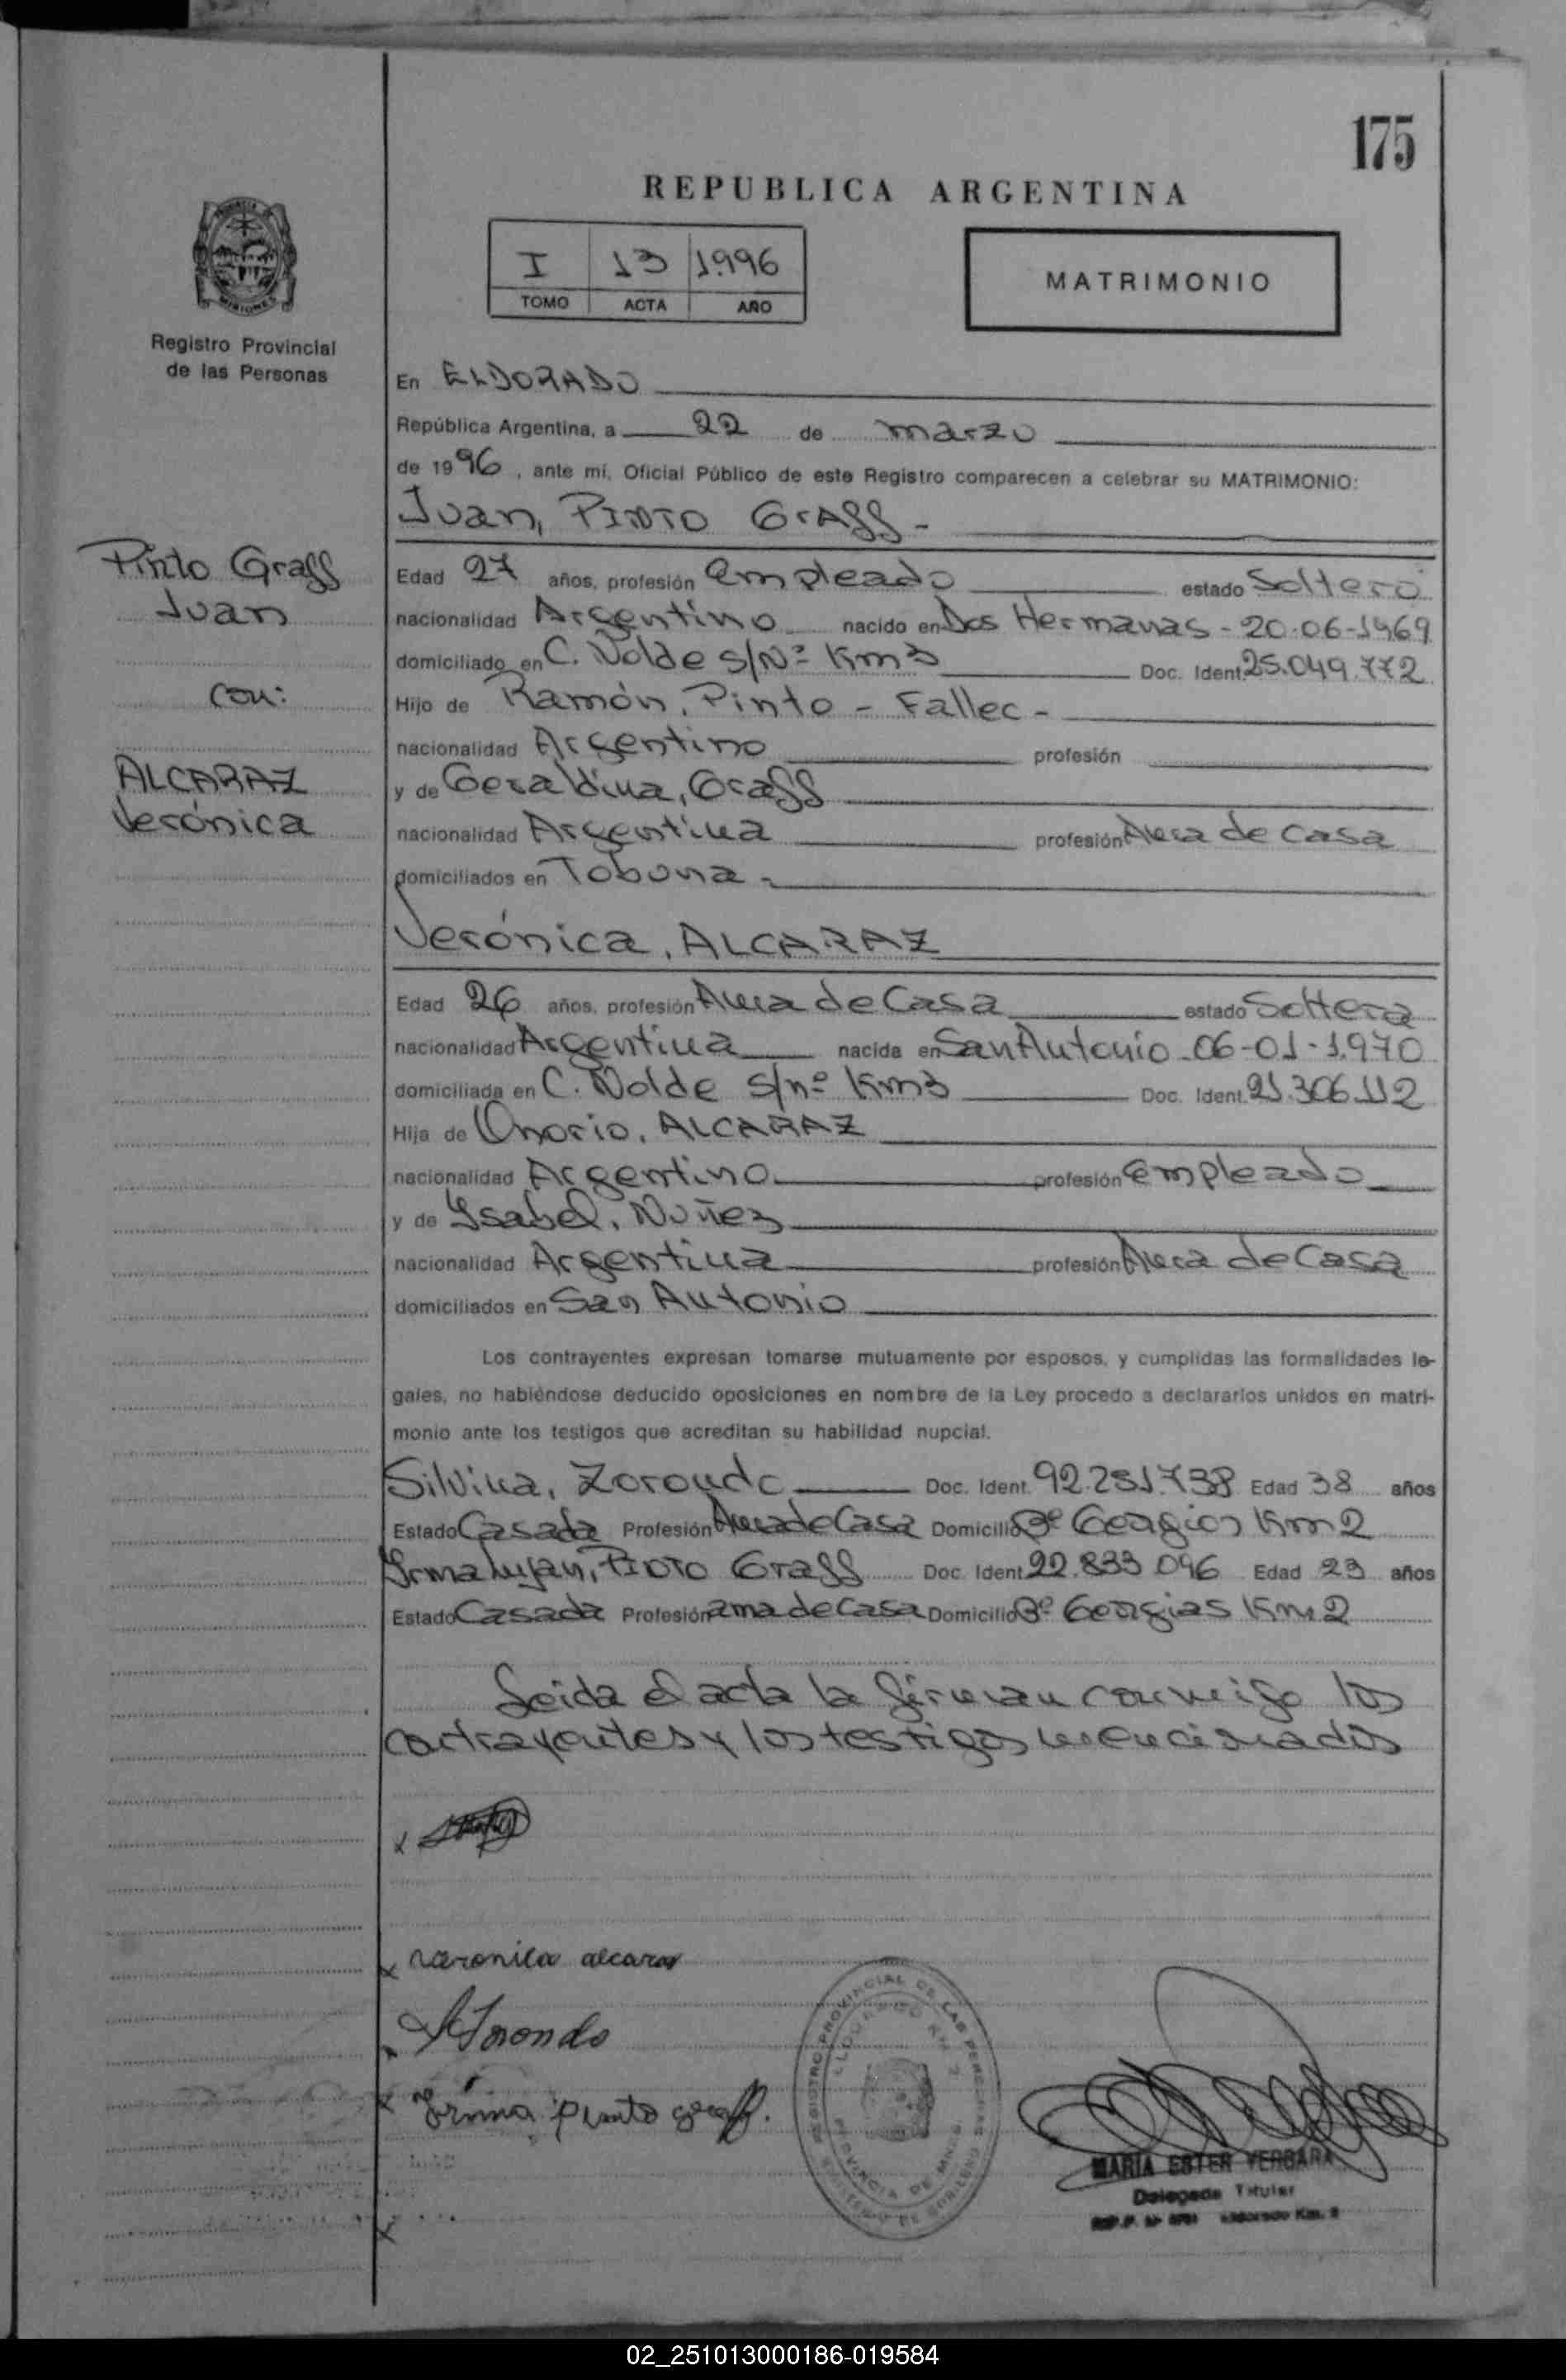 175
REPUBLICA ARGENTINA
I 13 1996
TOMO ACTA AÑO
MATRIMONIO
Registro Provincial
de las Personas
En ELDORADO
República Argentina, a 22 de marzo
de 1996, ante mí, Oficial Público de este Registro comparecen a celebrar su MATRIMONIO:
Juan, PINTO GrAff -
Pinto Graff
Juan
con:
ALCARAZ
Verónica
Edad 27 años, profesión Empleado estado Soltero
nacionalidad Argentino nacido en Dos Hermanas - 20-06-1969
domiciliado en C. Nolde s/Nº Km3 Doc. Ident. 25.049.772
Hijo de Ramón, Pinto - Fallec -
nacionalidad Argentino profesión
y de Geraldina, Graff
nacionalidad Argentina profesión Ama de casa
domiciliados en Tobuna -
Verónica, ALCARAZ
Edad 26 años, profesión Ama de Casa estado Soltera
nacionalidad Argentina nacida en San Antonio - 06-01-1.970
domiciliada en C. Nolde s/nº Km3 Doc. Ident. 21.306.112
Hija de Onorio, ALCARAZ
nacionalidad Argentino profesión Empleado
y de Ysabel, Nuñez
nacionalidad Argentina profesión Ama de Casa
domiciliados en San Antonio
Los contrayentes expresan tomarse mutuamente por esposos, y cumplidas las formalidades le-
gales, no habiéndose deducido oposiciones en nombre de la Ley procedo a declararlos unidos en matri-
monio ante los testigos que acreditan su habilidad nupcial.
Silvina, Zorondo Doc. Ident. 92.251.738 Edad 38 años
Estado Casada Profesión Ama de Casa Domicilio Bº Georgias Km 2
Yrma Lujan, PINTO Graff Doc. Ident. 22.833.096 Edad 23 años
Estado Casada Profesión ama de Casa Domicilio Bº Georgias Km 2
Leida el acta la firman conmigo los
contrayentes y los testigos mencionados
x
x veronica alcaraz
x
x Yrma pinto graff.
x
REGISTRO PROVINCIAL DE LAS PERSONAS
ELDORADO KM 2
PROVINCIA DE MNES
MINISTERIO DE GOBIERNO
MARIA ESTER VERGARA
Delegada Titular
Eldorado Km. 2
02_251013000186-019584